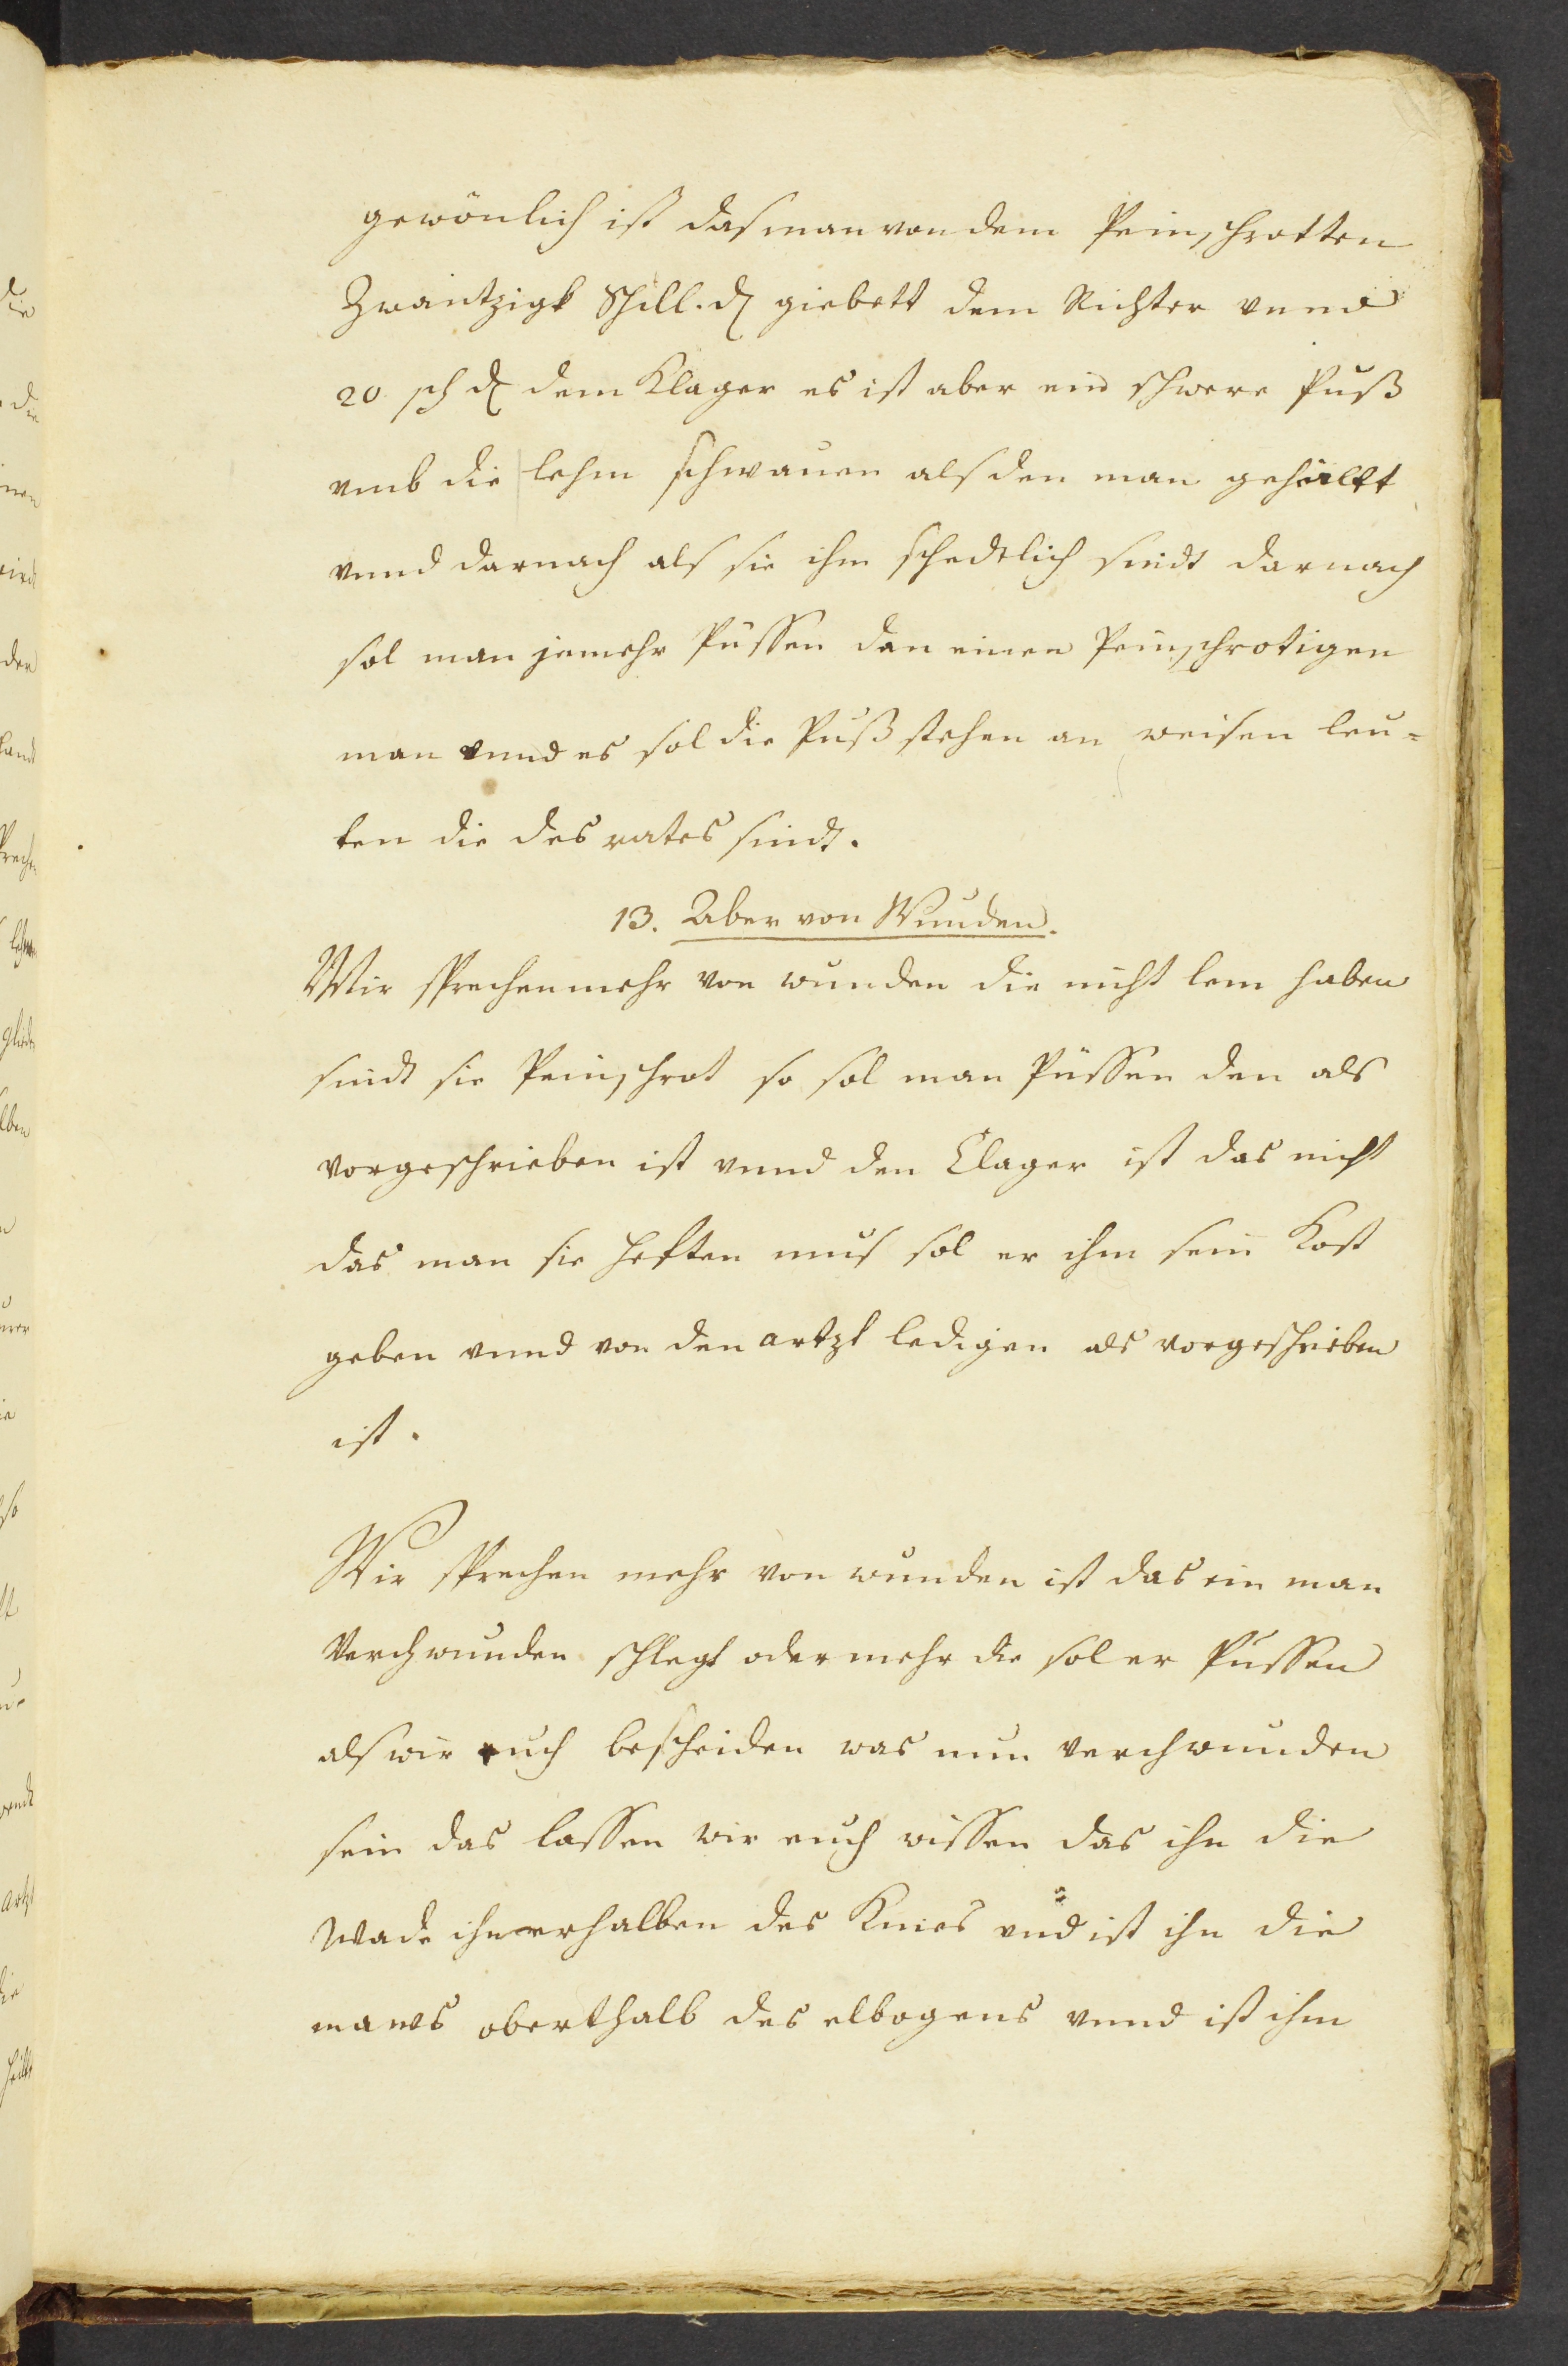 gewönlich ist das man von dem Peinschrotten
Zwäntzigk Schill. ₰ giebett dem Richter vnnd
20 sch ₰ dem Klager es ist aber ein schwere Puß
vmb die lehm schwanen als den man gehäkt
vnnd darnach als sie ihm schedtlich sindt darnach
sol man jemehr Püssen dan einen Peinschrotigen
man vnnd es sol die Puß stehen an weisen leu=
ten die des rates sindt.
13. Aber von Wunden.
Wir sprechen mehr von wunden die nicht lem haben
sindt sie Peinschrot so sol man Püssen den als
vorgeschrieben ist vnnd den Clager ist das nicht
das man sie heften mus sol er ihm sein Kost
geben vnnd von den artzt ledigen als vorgeschrieben
ist.
Wir sprechen mehr von wunden ist das ein man
Verchwunden schlegt oder mehr die sol er Pussen
als wir euch bescheiden was nun verchwunden
sein das lassen wir euch wissen das ihn die
Wade ihnerhalben des Knies vnd ist ihn die
maws oberthalb des elbogens vnnd ist ihm
die
die
der
landt
glieder
artzt
die